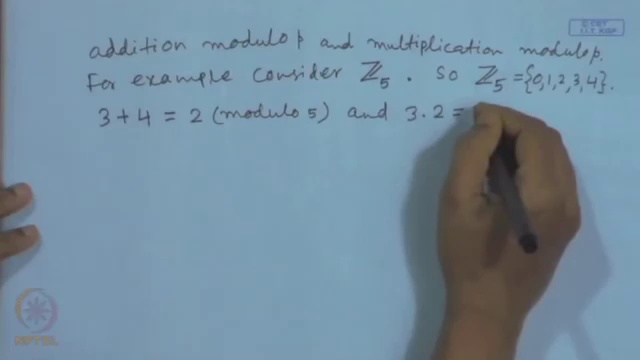 © CET
I.I.T. KGP
addition modulo p and multiplication modulo p.
For example consider ℤ₅. So ℤ₅ = {0,1,2,3,4}.
3 + 4 = 2 (modulo 5) and 3.2 =
NPTEL